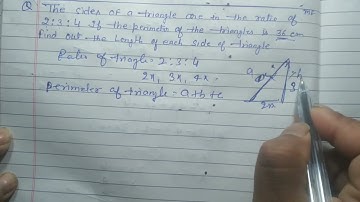 Q The sides of a triangle are in the ratio of
2:3:4 If the perimeter of the triangles is 36 cm
Find out the length of each side of triangle
Ratio of triangle = 2:3:4
2x, 3x, 4x
perimeter of triangle = a+b+c
a
b
2x